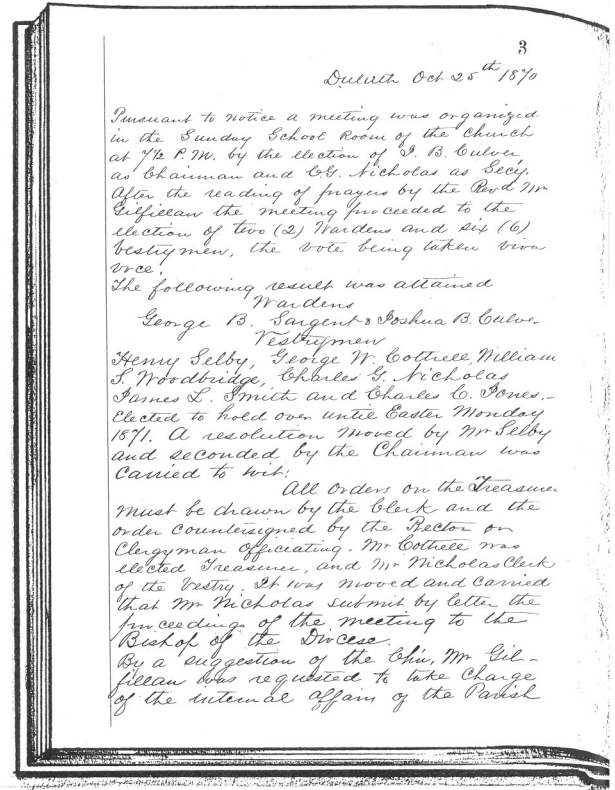 3
Duluth Oct 25th 1870
Pursuant to notice a meeting was organized
in the Sunday School Room of the Church
at 7½ P.M. by the election of J. B. Culver
as Chairman and C.G. Nicholas as Secy.
After the reading of prayers by the Revd Mr
Gilfillan the meeting proceeded to the
election of two (2) Wardens and six (6)
Vestrymen, the vote being taken viva
voce.
The following result was attained
Wardens
George B. Sargent & Joshua B. Culver
Vestrymen
Henry Selby, George W. Cottrell, William
S. Woodbridge, Charles G. Nicholas
James L. Smith and Charles C. Jones.-
Elected to hold over until Easter Monday
1871. A resolution moved by Mr Selby
and seconded by the Chairman was
carried to wit:
All orders on the Treasurer
must be drawn by the Clerk and the
order countersigned by the Rector or
Clergyman officiating. Mr Cottrell was
elected Treasurer, and Mr Nicholas Clerk
of the Vestry. It was moved and carried
that Mr Nicholas submit by letter the
proceedings of the meeting to the
Bishop of the Diocese.
By a suggestion of the Chn, Mr Gil-
fillan was requested to take charge
of the internal affairs of the Parish